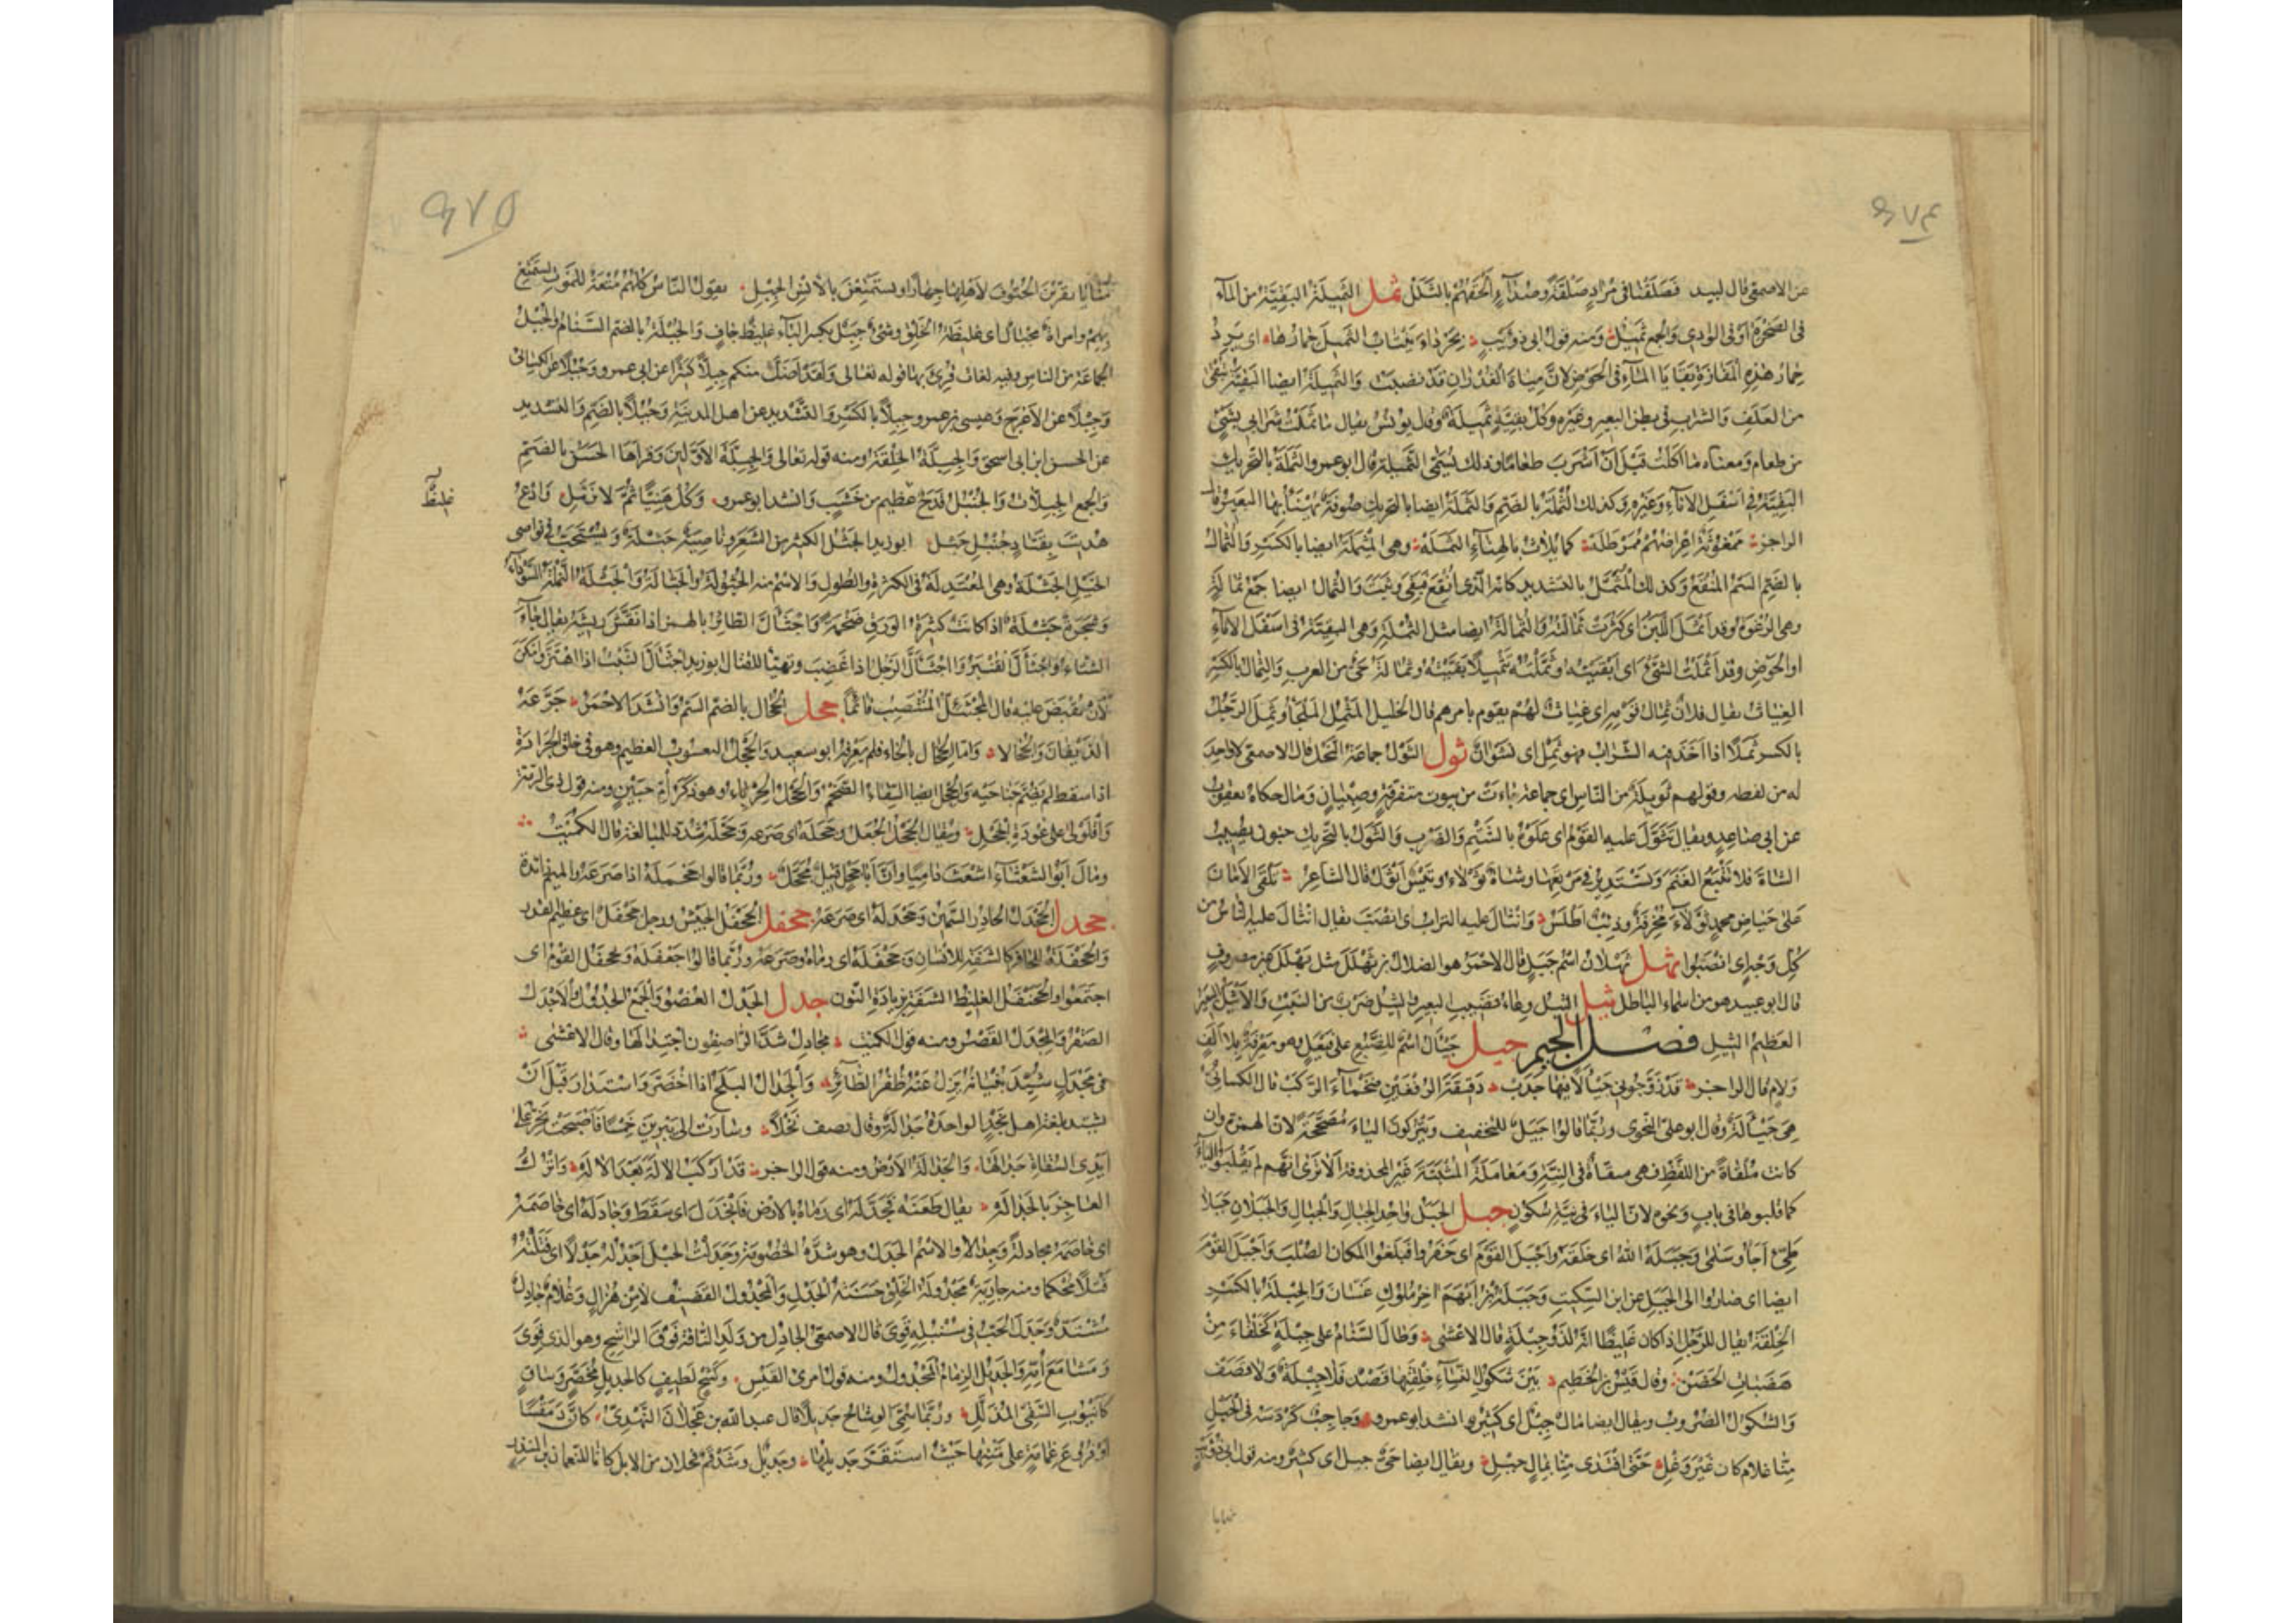 ٩٧٤
عن الاصمعي قال لبيد فصلقنا في مراد صلقة وصداء الحقتهم بالثلل ثمل الثميلة البقية من الماء
في الصخرة او في الوادي والجمع ثميل ومنه قول ابي ذؤيب بجرداء ينتاب الثميل حمارها اى يرد
حمار هذه المفازة بقايا الماء في الحوض لان مياه الغدران قد نضبت والثميلة ايضا البقية تبقى
من العلف والشراب في بطن البعير وغيره وكل بقية ثميلة وقال يونس يقال ما ثملت شرابي بشئ
من طعام ومعناه ما اكلت قبل ان اشرب طعاما وذلك يسمى الثميلة قال ابو عمرو الثملة بالتحريك
البقية في اسفل الاناء وغيره وكذلك الثملة بالضم والثملة ايضا بالتحريك صوفة يهنأ بها البعير قال
الراجز ممغوثة اعراضهم ممرطلة كما تلاث بالهناء الثملة وهي المثملة ايضا بالكسر والثمال
بالضم السم المنقع وكذلك المثمل بالتشديد كانه الذى انقع فبقى وثبت والثمال ايضا جمع ثمالة
وهي الرغوة وقد اثمل اللبن اى كثرت ثمالته والثمالة ايضا مثل الثملة وهي البقية في اسفل الاناء
او الحوض وقد اثملت الشئ اى ابقيته وثملته تثميلا بقيته وثمالة حى من العرب والثمال بالكسر
الغياث يقال فلان ثمال قومه اى غياث لهم يقوم بامرهم قال الخليل المثمل الملجأ وثمل الرجل
بالكسر ثملا اذا اخذ فيه الشراب فهو ثمل اى نشوان ثول الثول جماعة النحل قال الاصمعي لا واحد
له من لفظه وقولهم ثويلة من الناس اى جماعة جاءت من بيوت متفرقة وصبيان ومال حكاه يعقوب
عن ابي صاعد ويقال تثول عليه القوم اى علوه بالشتم والضرب والثول بالتحريك جنون يصيب
الشاة فلا تتبع الغنم وتستدير في مرتعها وشاة ثولاء وتيس اثول قال الشاعر تلقى الامان
على حياض محمد ثولاء مخرفة وذئب اطلس وانثال عليه التراب اى انصب يقال انثال عليه الناس من
كل وجه اى انصبوا ثهل ثهلان اسم جبل قال الاحمر هو الضلال بن ثهلل مثل بهلل غير مصروف
قال ابو عبيد هو من اسماء الباطل ثيل الثيل وعاء قضيب البعير والثيل ضرب من النبت والاثيل البعير
العظيم الثيل فصل الجيم جيل جيأل اسم للضبع على فيعل وهو معرفة بلا الف
ولام قال الراجز قد زوجوني جيألا فيها حدب دقيقة الرفغين ضخماء الركب قال الكسائي
هي جيألة وقال ابو علي النحوى وربما قالوا جيل للتخفيف ويتركون الياء مصححة لان الهمزة وان
كانت ملقاة من اللفظ فهي مبقاة في النية ومعاملة المثبتة غير المحذوفة الا ترى انهم لم يقلبوا الياء
كما قلبوها في باب ونحوه لان الياء في نية سكون جبل الجبل واحد الجبال والجبال والجبلان جبلا
طيئ اجأ وسلمى وجبله الله اى خلقه واجبل القوم اى حفروا فبلغوا المكان الصلب واجبل القوم
ايضا اى صاروا الى الجبل عن ابن السكيت وجبلة بن ايهم اخر ملوك غسان والجبلة بالكسر
الخلقة يقال للرجل اذا كان غليظا انه لذو جبلة قال الاعشى وطال السنام على جبلة كخلقاء من
هضبات الحضن وقال قيس بن الخطيم بين شكول النساء خلقتها قصد فلا جبلة ولا قضف
والشكول الضروب ويقال ايضا مال جبل اى كثير وانشد ابو عمرو وحاجب كردسه في الحبل
منا غلام كان غير وغل حتى افتدى منا بمال جبل ويقال ايضا حى جبل اى كثير ومنه قول ابي ذؤيب
منايا
٩٧٥
منايا يقربن الحتوف لاهلها جهارا ويستمتعن بالانس الجبل يقول الناس كلهم متعة للموت يستمتع
بهم وامراة مجبال اى غليظة الخلق وشئ جبل بكسر الباء غليظ جاف والجبلة بالضم السنام والجبل
الجماعة من الناس وفيه لغات قرئ بها قوله تعالى ولقد اضل منكم جبلا كثيرا عن ابي عمرو وجبلا عن الكسائي
وجبلا عن الاعرج وعيسى بن عمر وجبلا بالكسر والتشديد عن اهل المدينة وجبلا بالضم والتشديد
عن الحسن ابن ابي اسحق والجبلة الخلقة ومنه قوله تعالى والجبلة الاولين وقراها الحسن بالضم
والجمع الجبلات والجنبل قدح عظيم من خشب وانشد ابو عمرو وكل هنيئا ثم لا تزمل وادع
هديت بقتاد جنبل جثل ابو زيد الجثل الكثير من الشعر وناصية جثلة ويستحب في نواصى
الخيل الجثلة وهي المعتدلة في الكثرة والطول والاسم منه الجثولة والجثالة والجثلة النملة السوداء
وشجرة جثلة اذا كانت كثيرة الورق ضخمة واجثأل الطائر بالهمز اذا نفش ريشه يقال جاء
الشتاء واجثأل القنبر واجثأل الرجل اذا غضب وتهيأ للقتال ابو زيد اجثأل النبت اذا اهتز وامكن
لان يقبض عليه قال المجثئل المنتصب قائما جحل الجحال بالضم السم وانشد الاحمر جرعه
الذيفان والجحالا واما الجخال بالخاء فلم يعرفه ابو سعيد والجحل اليعسوب العظيم وهو في خلق الجرادة
اذا سقط لم يضم جناحيه والجحل ايضا السقاء الضخم والجحل الحرباء وهو ذكر ام حبين ومنه قول ذى الرمة
واقلولى على عوده الجحل ويقال الجحل الجعل وجحله اى صرعه وجحله شدد للمبالغة قال الكميت
ومال ابو الشعثاء اشعث داميا وان ابا جحل قتيل مجحل وربما قالوا جحمله اذا صرعه والميم زائدة
جحدل الجحدل الحادر السمين وجحدله اى صرعه جحفل الجحفل الجيش ورجل جحفل اى عظيم القدر
والجحفلة للحافر كالشفة للانسان وجحفله اى رماه وصرعه وربما قالوا جعفله وتجحفل القوم اى
اجتمعوا والجحنفل الغليظ الشفة بزيادة النون جدل الجدل العضو والجمع الجدول والاجدل
الصقر والمجدل القصر ومنه قول الكميت مجادل شد الراصفون اجتدالها وقال الاعشى
في مجدل شيد بنيانه يزل عنه ظفر الطائر والجدال البلح اذا اخضر واستدار قبل ان
يشتد بلغة اهل نجد الواحدة جدالة وقال يصف نخلا وسارت الى يبرين خمسا فاصبحت يخر على
ايدى السقاة جدالها والجدالة الارض ومنه قول الراجز قد اركب الالة بعد الاله واترك
العاجز بالجداله يقال طعنه فجدله اى رماه بالارض فانجدل اى سقط وجادله اى خاصمه
اى خاصمه مجادلة وجدالا والاسم الجدل وهو شدة الخصومة وجدلت الحبل اجدله جدلا اى فتلته
فتلا محكما ومنه جارية مجدولة الخلق حسنة الجدل والمجدول القضيف لا من هزال وغلام جادل
مشتد وجدل الحب في سنبله قوى قال الاصمعي الجادل من ولد الناقة فوق الراشح وهو الذى قوى
ومشا مع امه والجديل الزمام المجدول ومنه قول امرئ القيس وكشح لطيف كالجديل مخصر وساق
كانبوب السقى المذلل وربما سمى الوشاح جديلا قال عبد الله بن عجلان النهدى كان دمقسا
او فروع غمامة على متنها حيث استقر جديلها وجديل وشدقم فحلان من الابل كانا للنعمان بن المنذر
غليظ